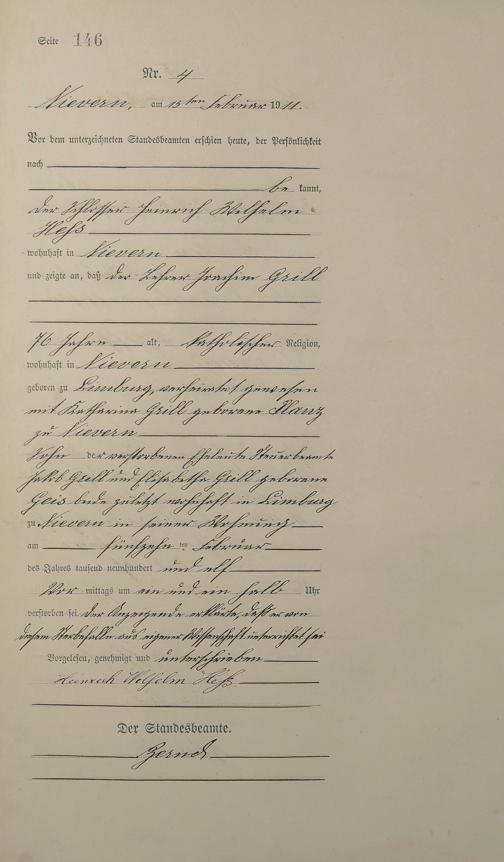 Seite 146
Nr. 4
Nievern, am 15ten Februar 1911.
Vor dem unterzeichneten Standesbeamten erschien heute, der Persönlichkeit
nach
be kannt,
der Schlosser Heinrich Wilhelm
Heß
wohnhaft in Nievern
und zeigte an, daß der Lehrer Joachim Grill
76 Jahre alt, katholischer Religion,
wohnhaft in Nievern
geboren zu Limburg, verheiratet gewesen
mit Katharina Grill geborene
zu Nievern
Sohn der verstorbenen Eheleute Steuerbeamte
Jakob Grill und Elisabetha Grill geborene
Geis beide zuletzt wohnhaft in Limburg
zu Nievern in seiner Wohnung
am fünfzehn ten Februar
des Jahres tausend neunhundert und elf
Vor mittags um ein und ein halb Uhr
verstorben sei. Der Anzeigende erklärte, daß er von
diesem Sterbefalle aus eigener Wissenschaft unterrichtet sei
Vorgelesen, genehmigt und unterschrieben
Heinrich Wilhelm Heß
Der Standesbeamte.